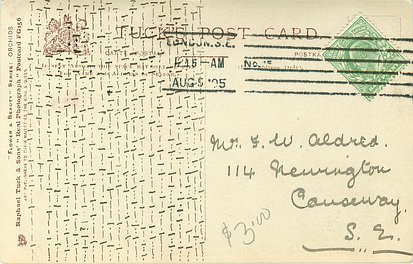 TUCK'S POST CARD
CARTE POSTALE
POSTKARTE
LONDON. S.E.
12.15-AM
AUG 5 '05
Mr. F. W. Aldred.
114 Newington
Causeway.
S. E.
$3.00
"FLOWER & BEAUTY" SERIES: ORCHIDS
Raphael Tuck & Sons' "Real Photograph" Postcard